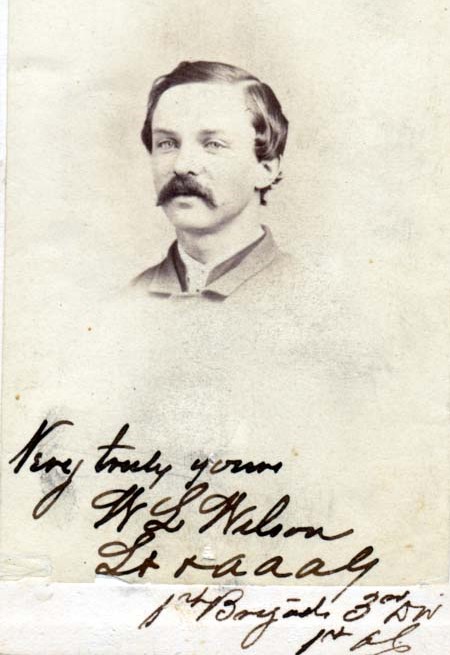 Very truly yours
W L Wilson
Lt & a a a G
1st Brigade 3rd Div
1st A C